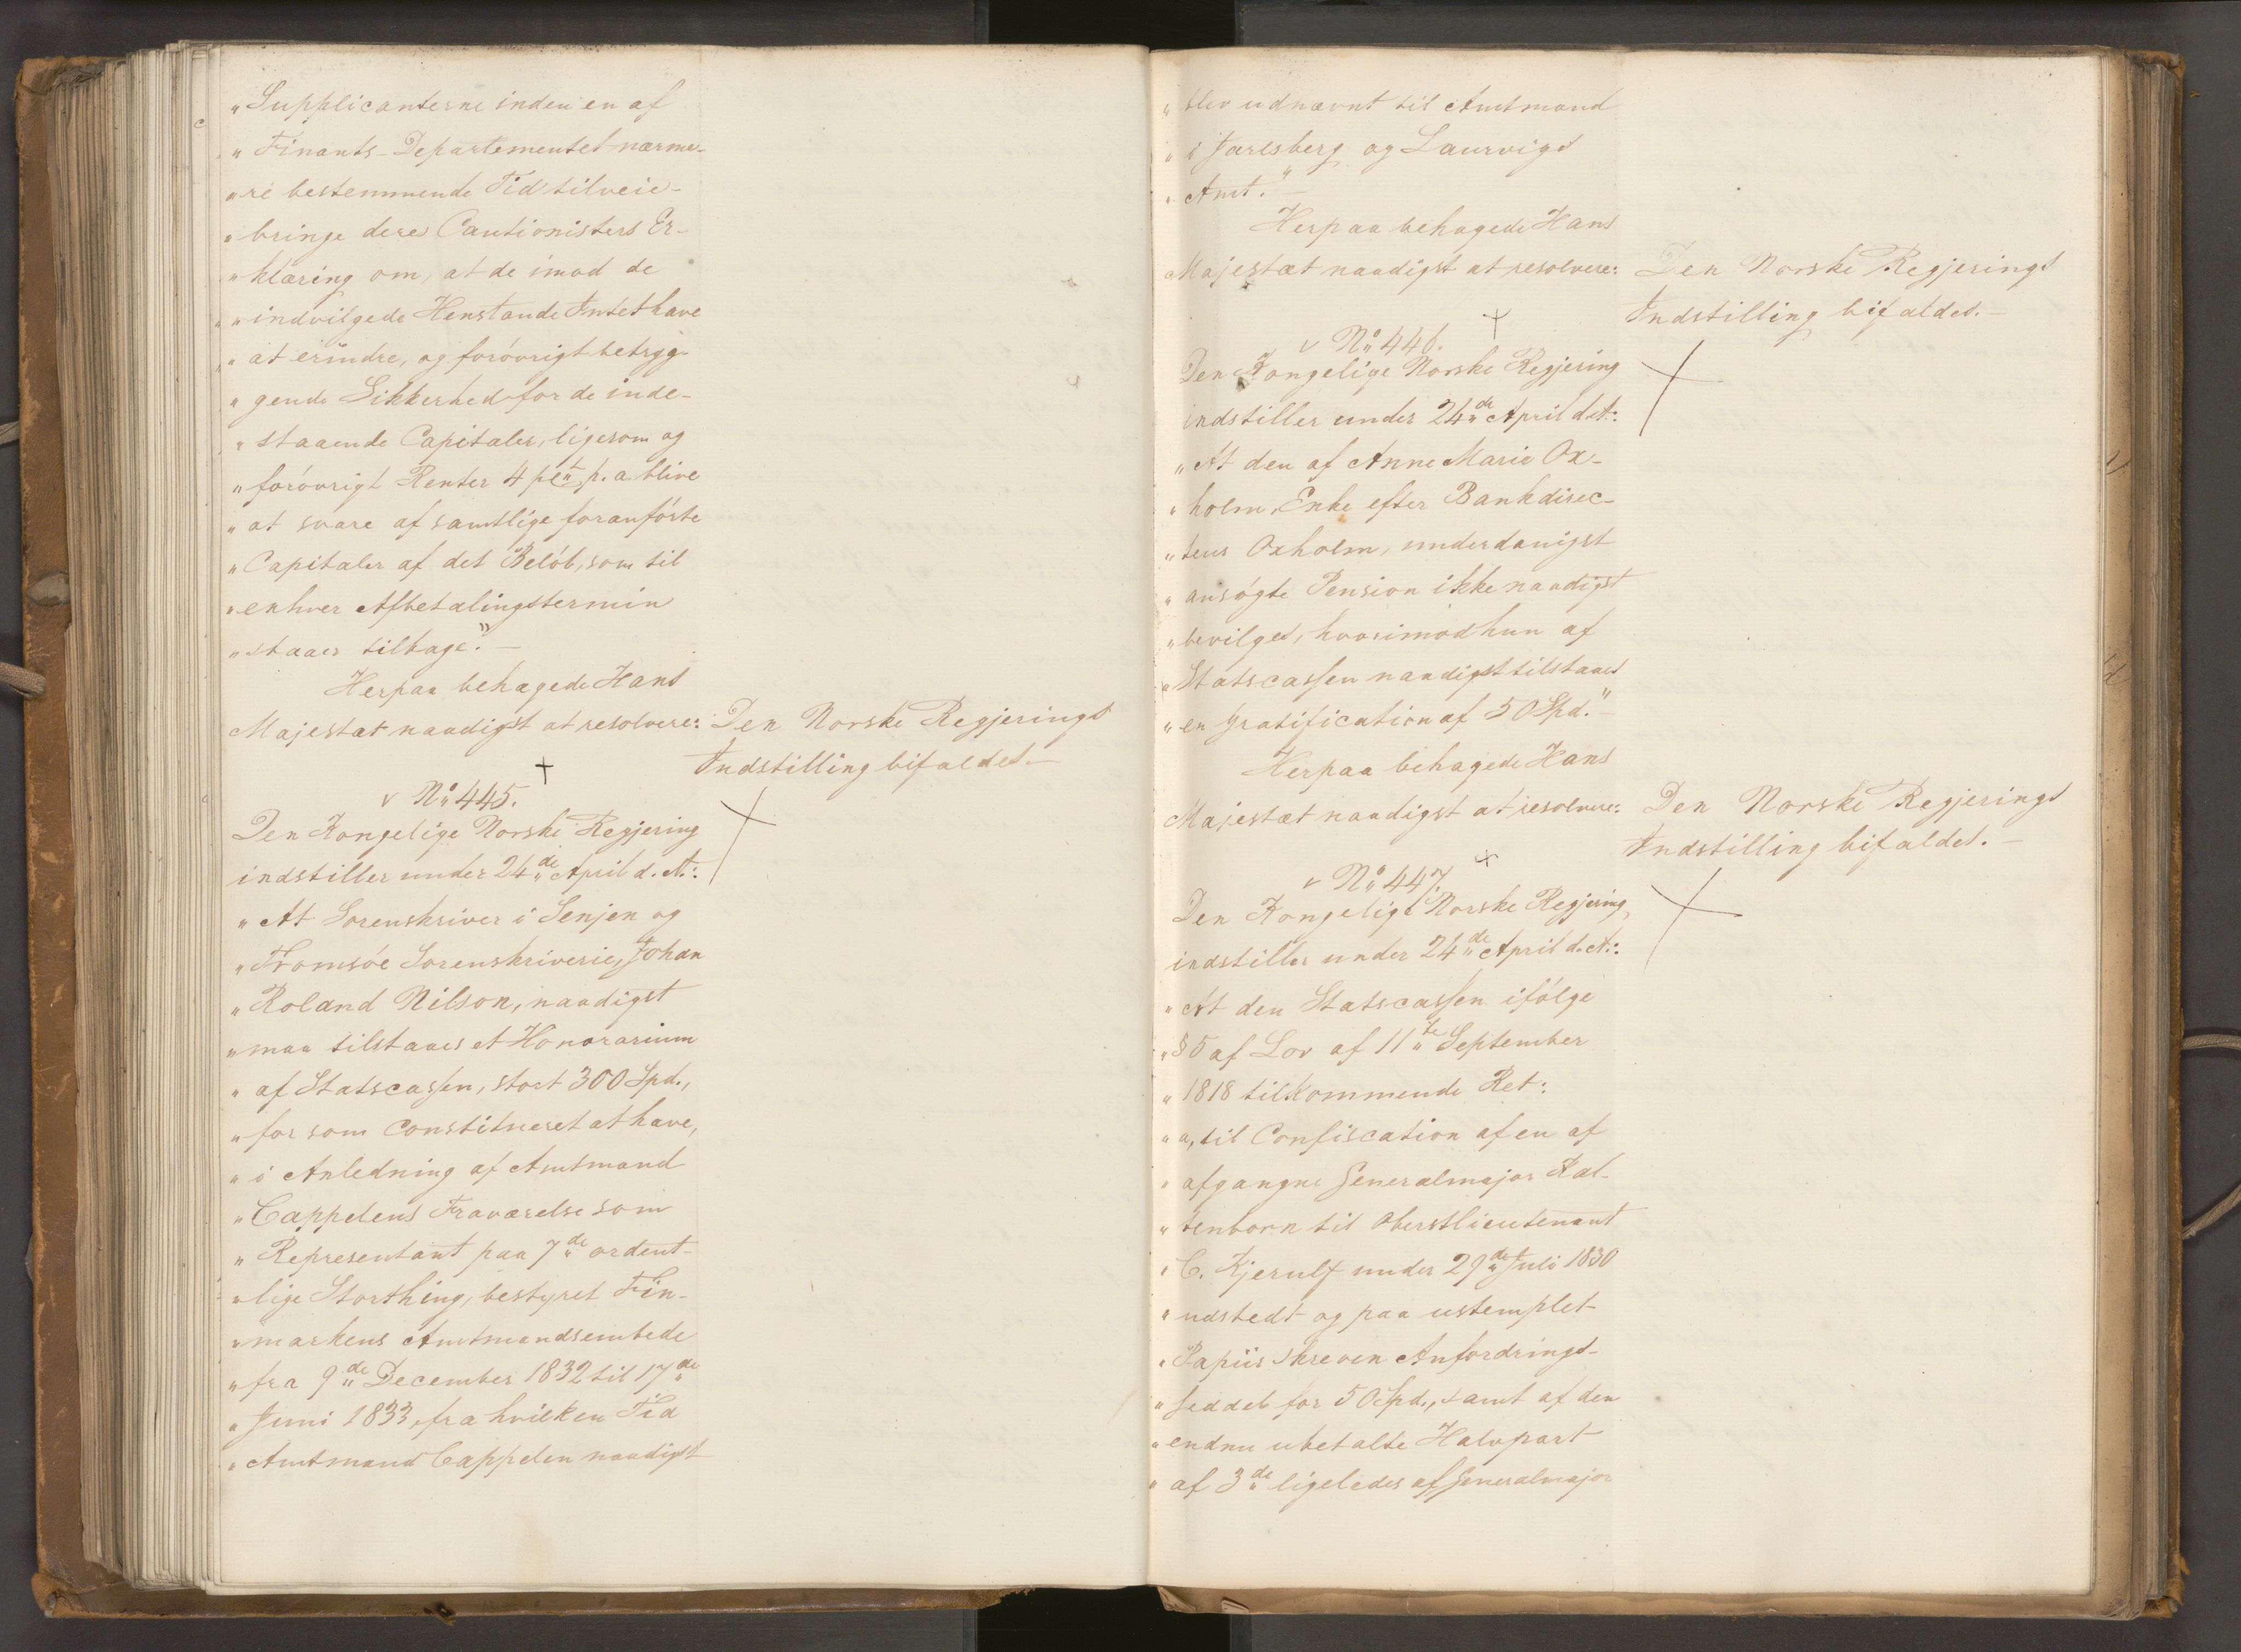 „Supplicanterne inden en af
„Finants-Departementet nærme-
„re bestemmende Tid tilveie-
„bringe deres Cautionisters Er-
„klæring om, at de imod de
„indvilgede Henstande Intet have
„at erindre, og forövrigt betryg-
„gende Sikkerhed for de inde-
„staaende Capitaler, ligesom og
„forövrigt Renter 4 pCt p. a blive
„at svare af samtlige foranförte
„Capitaler af det Belöb, som til
„enhver Afbetalingstermin
„staaer tilbage.” –
Herpaa behagede Hans
Majestæt naadigst at resolvere: Den Norske Regjerings
Indstilling bifaldes. –
v No 445.
Den Kongelige Norske Regjering
indstiller under 24de April d. A.:
„At Sorenskriver i Senjen og
„Tromsöe Sorenskriverie, Johan
„Roland Nilson, naadigst
„maa tilstaaes et Honorarium
„af Statscassen, stort 300 Spd.,
„for som Constitueret at have,
„i Anledning af Amtmand
„Cappelens Fraværelse som
„Representant paa 7de ordent-
„lige Storthing, bestyret Fin-
„markens Amtmandsembede
„fra 9de December 1832 til 17de
„Juni 1833, fra hvilken Tid
„Amtmand Cappelen naadigst
„blev udnævnt til Amtmand
„i Jarlsberg og Laurvigs
„Amt.” –
Herpaa behagede Hans
Majestæt naadigst at resolvere: Den Norske Regjerings
Indstilling bifaldes. –
v No 446.
Den Kongelige Norske Regjering
indstiller under 24de April d.A.:
„At den af Anne Marie Ox-
„holm, Enke efter Bankdirec-
„teur Oxholm, underdanigst
„ansögte Pension ikke naadigst
„bevilges, hvorimod hun af
„Statscassen naadigst tilstaaes
„en Gratification af 50 Spd.” –
Herpaa behagede Hans
Majestæt naadigst at resolvere: Den Norske Regjerings
Indstilling bifaldes. –
v No 447.
Den Kongelige Norske Regjering,
indstiller under 24de April d. A.:
„At den Statscassen ifölge
„§ 5 af Lov af 11te September
„1818 tilkommende Ret:
„a, til Confiscation af en af
„afgangne Generalmajor Kal-
„tenborn til Oberstlieutenant
„C. Kjerulf under 29de Juli 1830
„udstedt og paa ustemplet
„Papiir skreven Anfordrings-
„seddel for 50 Spd., samt af den
„endnu ubetalte Halvpart
„af 3de ligeledes af Generalmajor